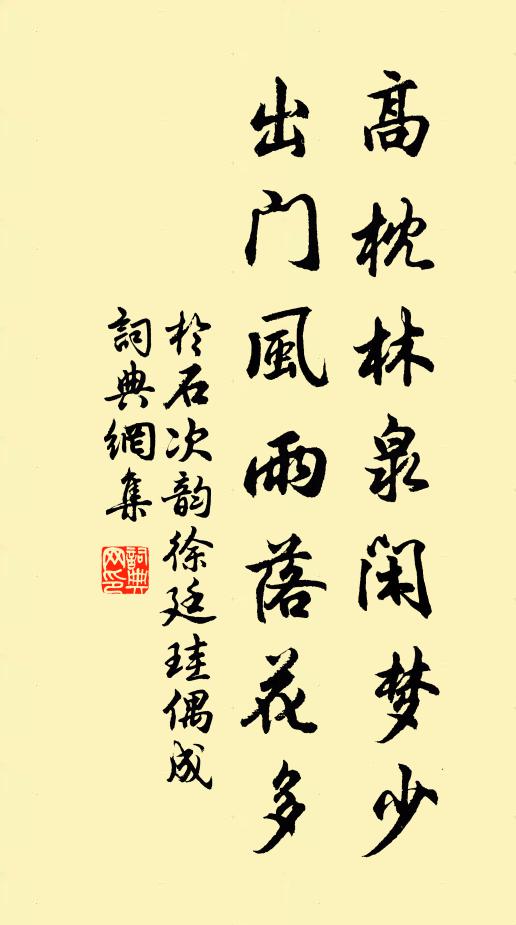 高枕林泉闲梦少
出门風雨落花多
於石次韵徐廷珪偶成
詞典網集
詞典网印